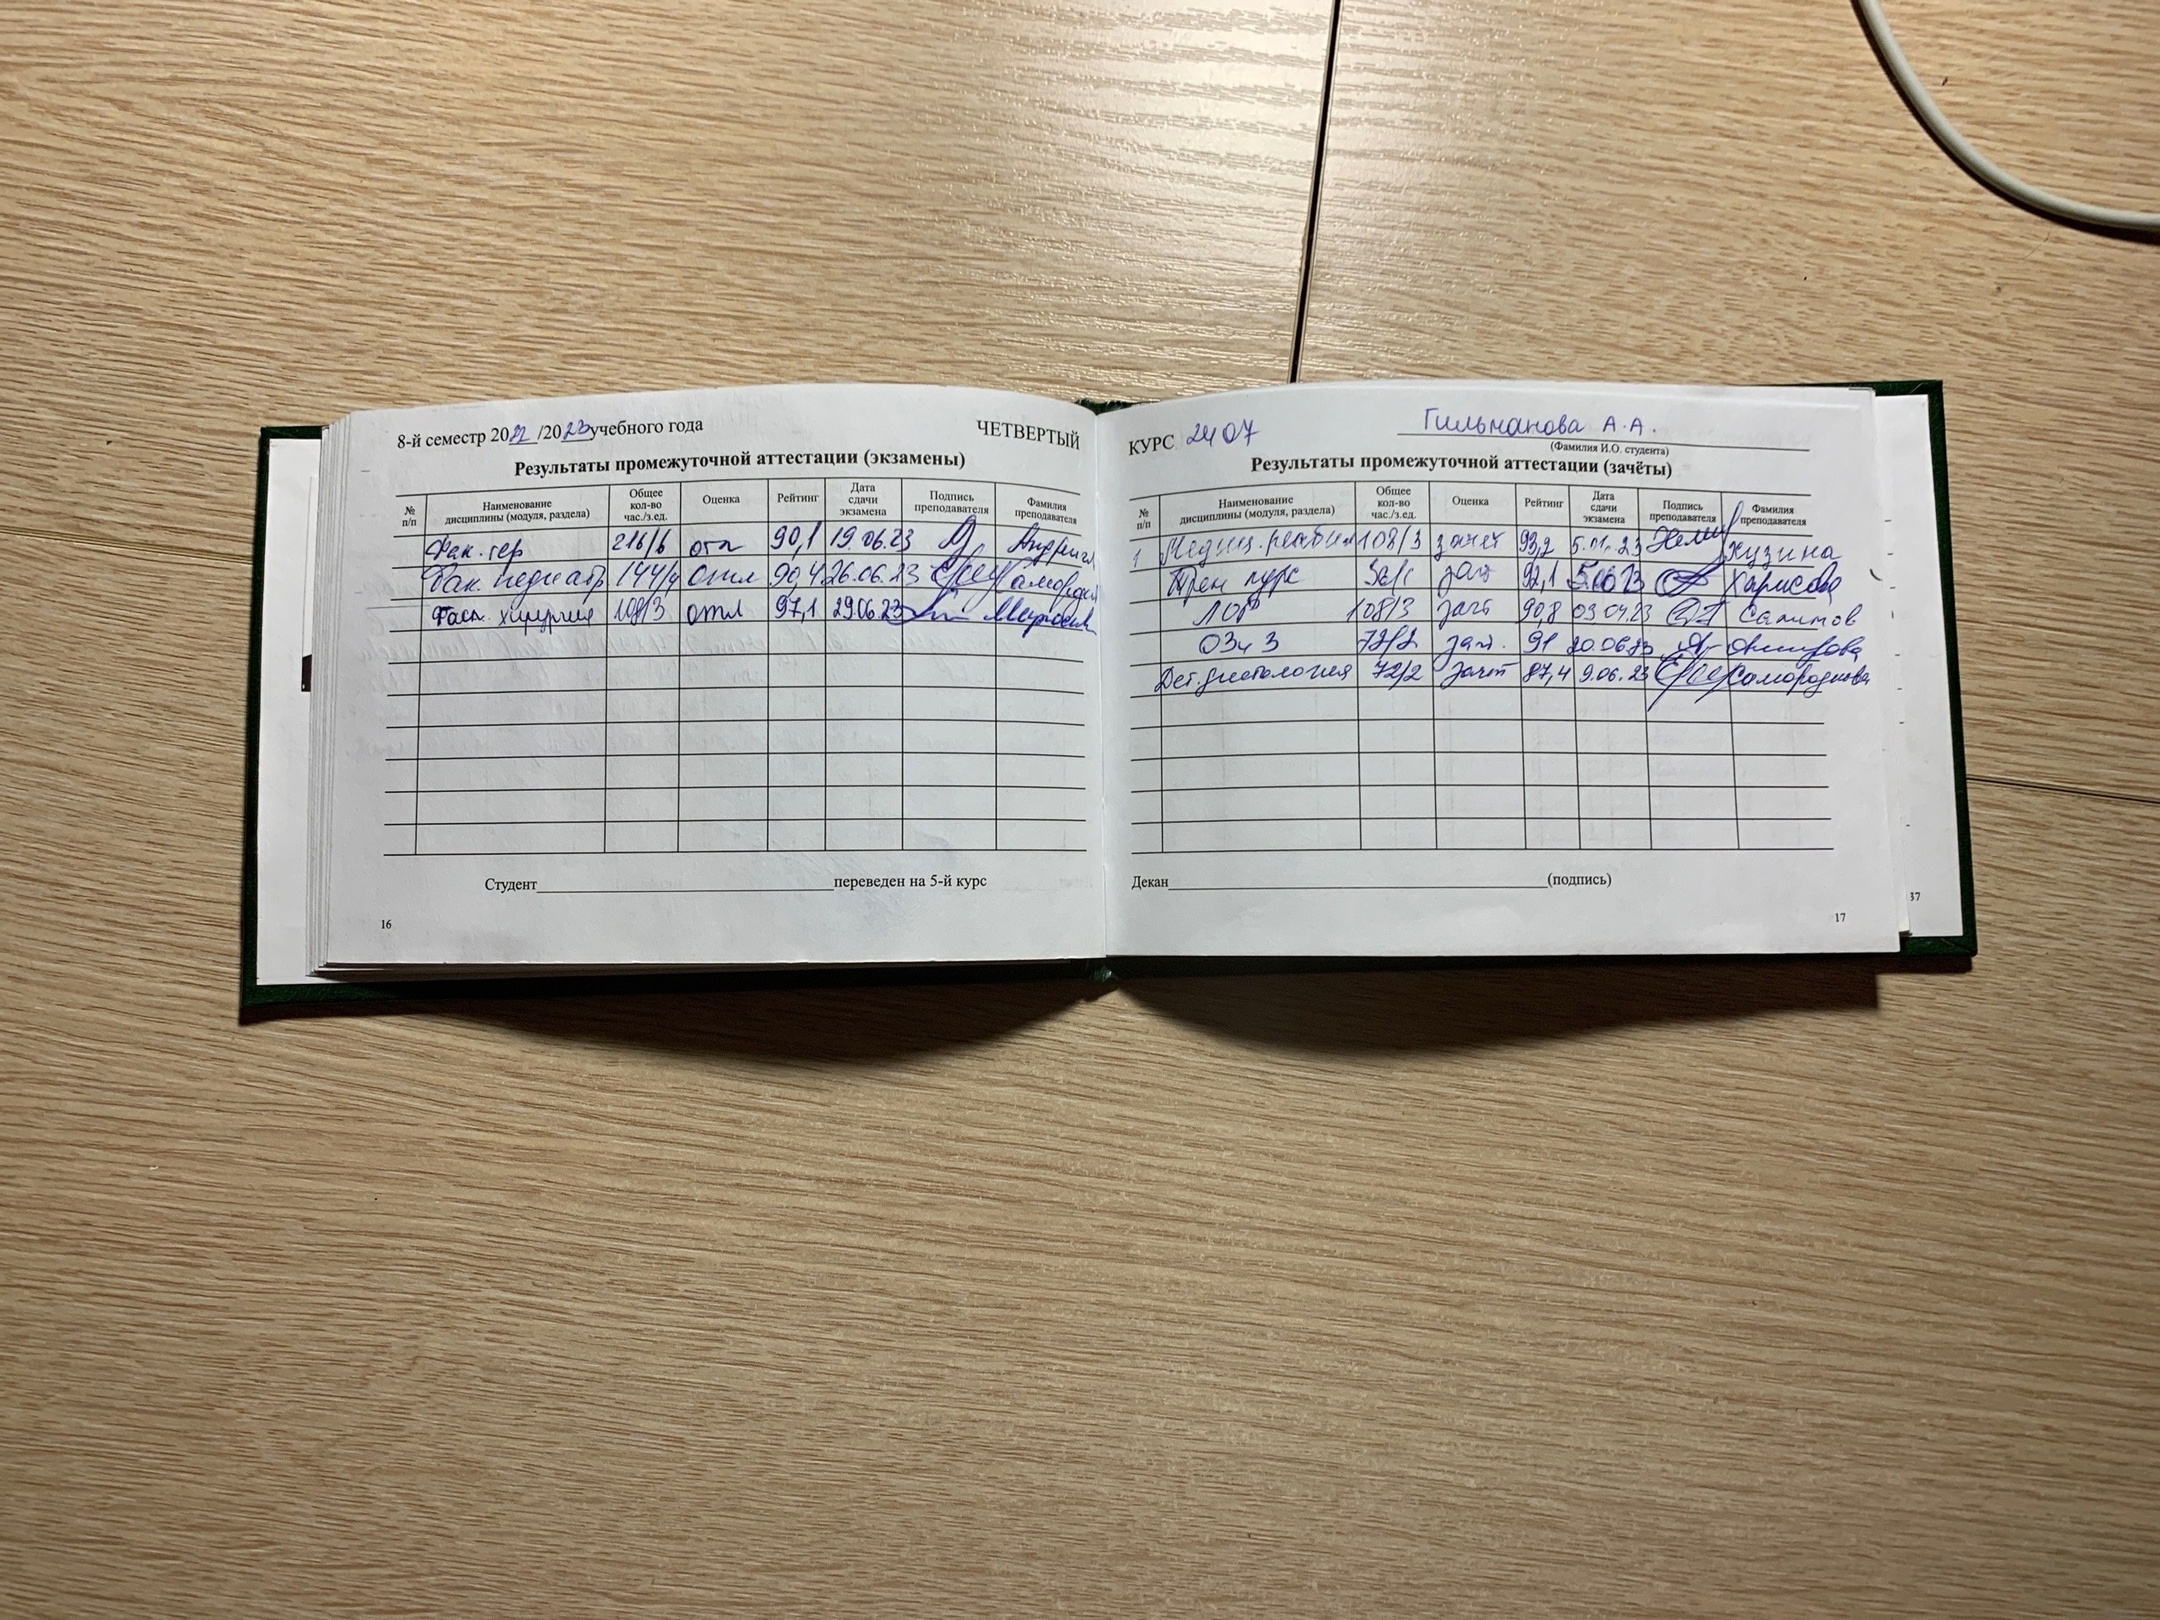 8-й семестр 2022/2023 учебного года ЧЕТВЕРТЫЙ
Результаты промежуточной аттестации (экзамены)
№ п/п Наименование дисциплины (модуля, раздела) Общее кол-во час./з.ед. Оценка Рейтинг Дата сдачи экзамена Подпись преподавателя Фамилия преподавателя
Фак. тер 216/6 отл 90,1 19.06.23
Фак. педиатр 144/4 отл 90,4 26.06.23 Самородн
хирургия 108/3 отл 97,1 29.06.23
Студент переведен на 5-й курс
16
КУРС 2407 Гильманова А.А.
(Фамилия И.О. студента)
Результаты промежуточной аттестации (зачёты)
№ п/п Наименование дисциплины (модуля, раздела) Общее кол-во час./з.ед. Оценка Рейтинг Дата сдачи экзамена Подпись преподавателя Фамилия преподавателя
1 Медиц. реабил 108/3 зачет 93,2 23 Хузина
36/1 зач 92,1 5.06 23 Харисова
ЛОР 108/3 зачт 90,8 03 04.23 Салимов
ОЗиЗ 72/2 зач. 91 20.06.23
Дет. 72/2 зачт 87,4 9.06.23 Самороднова
Декан (подпись)
17
37